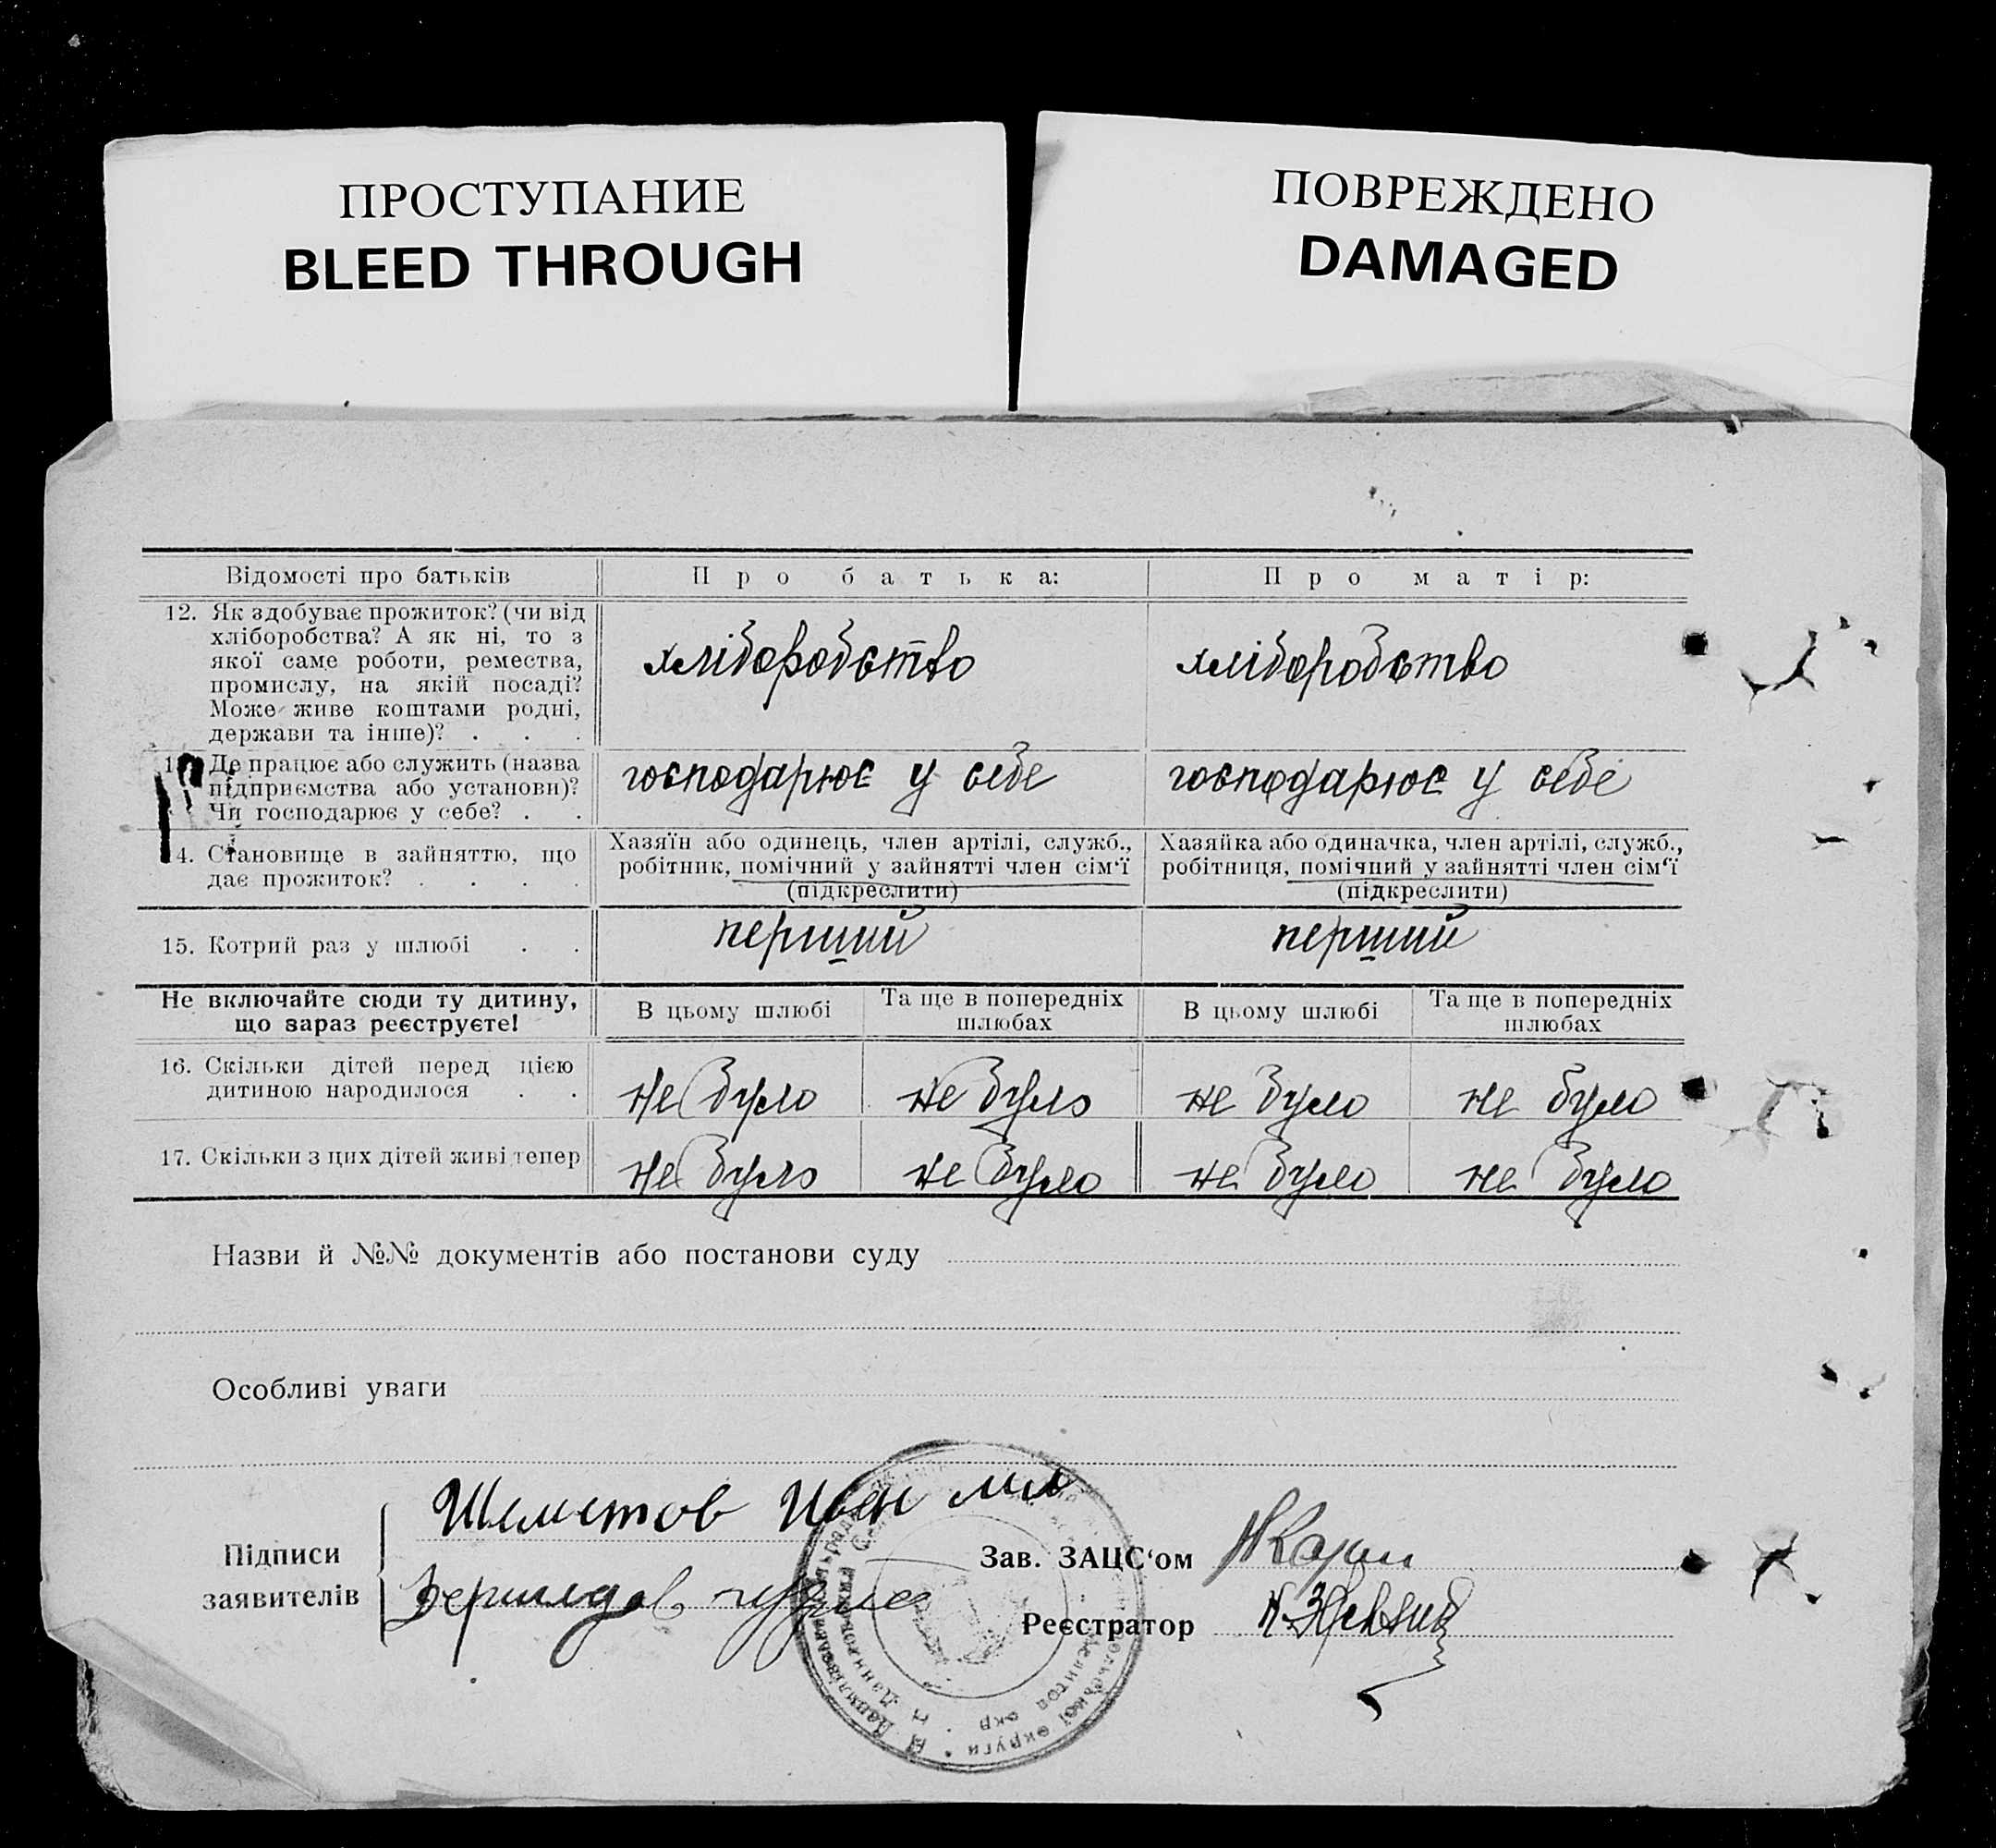 ПРОСТУПАНИЕ
BLEED THROUGH
ПОВРЕЖДЕНО
DAMAGED
Відомості про батьків
Про батька:
Про матір:
12. Як здобуває прожиток? (чи від
хліборобства? А як ні, то з
якої саме роботи, ремества,
промислу, на якій посаді?
Може живе коштами родні,
держави та інше)? . . .
хліборобство
хліборобство
Де працює або служить (назва
підприємства або установи)?
Чи господарює у себе? . .
господарює у себе
господарює у себе
4. Становище в зайняттю, що
дає прожиток? . . . .
Хазяїн або одинець, член артілі, служб.,
робітник, помічний у зайнятті член сім‘ї
(підкреслити)
Хазяйка або одиначка, член артілі, служб.,
робітниця, помічний у зайнятті член сім‘ї
(підкреслити)
15. Котрий раз у шлюбі . .
перший
перший
Не включайте сюди ту дитину,
що зараз реєструєте!
В цьому шлюбі
Та ще в попередніх
шлюбах
В цьому шлюбі
Та ще в попередніх
шлюбах
16. Скільки дітей перед цією
дитиною народилося . .
не було
не було
не було
не було
17. Скільки з цих дітей живі тепер
не було
не було
не було
не було
Назви й №№ документів або постанови суду
Особливі уваги
Підписи
заявителів
Шеметов Иван
Зав. ЗАЦС‘ом
Реєстратор
округи
окр